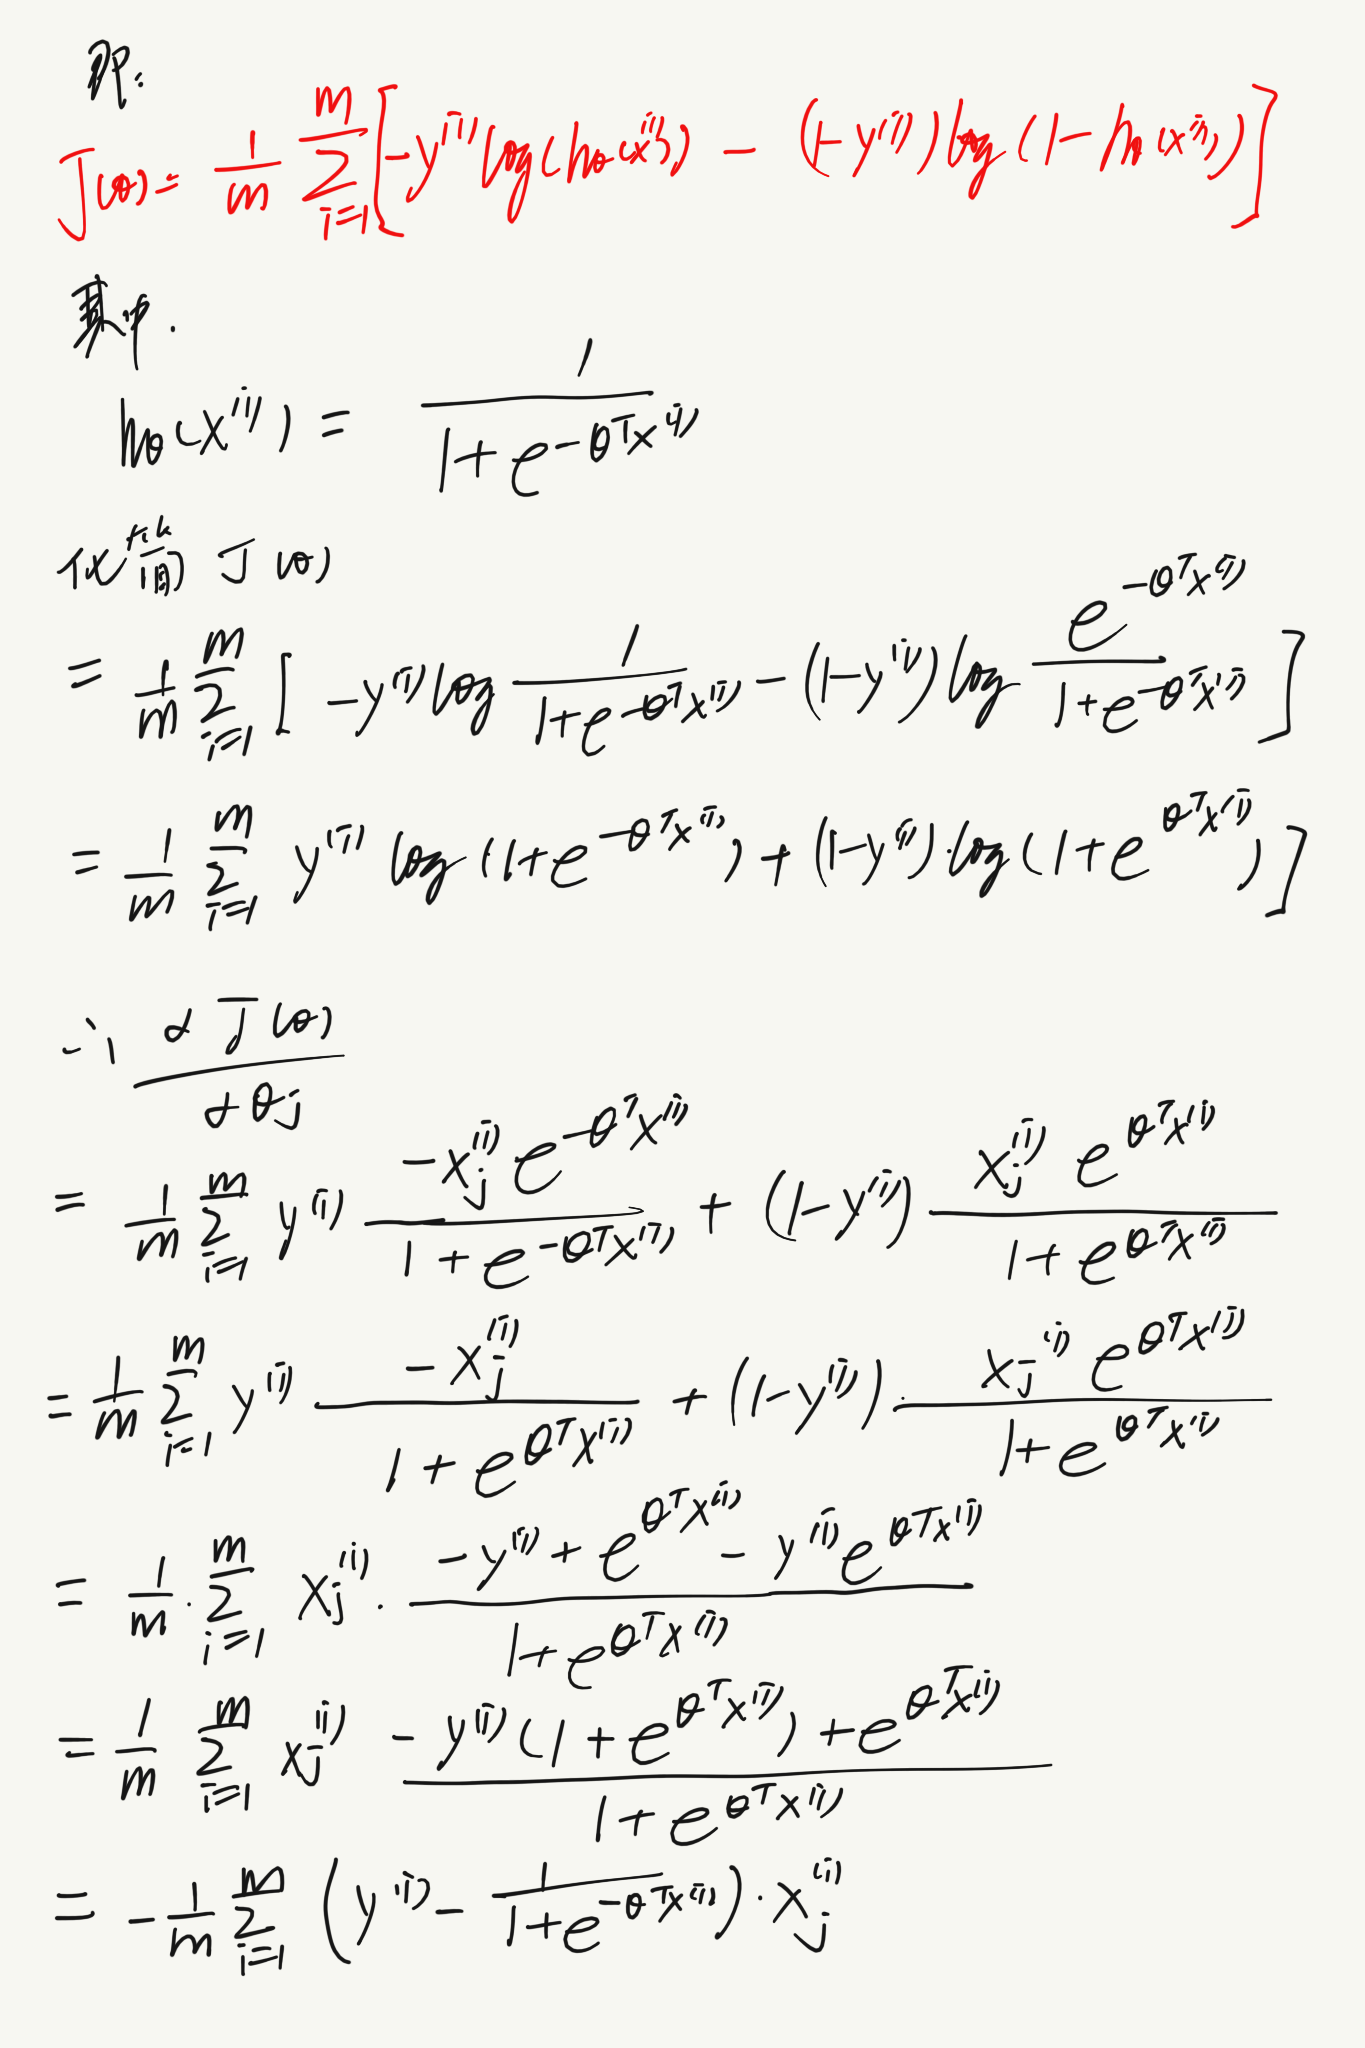 即:
J(θ) = \frac{1}{m} \sum_{i=1}^{m} [-y^{(i)} log(h_θ(x^{(i)})) - (1-y^{(i)}) log(1-h_θ(x^{(i)}))]
其中.
h_θ(x^{(i)}) = \frac{1}{1+e^{-θ^T x^{(i)}}}
化简 J(θ)
= \frac{1}{m} \sum_{i=1}^{m} [-y^{(i)} log \frac{1}{1+e^{-θ^T x^{(i)}}} - (1-y^{(i)}) log \frac{e^{-θ^T x^{(i)}}}{1+e^{-θ^T x^{(i)}}}]
= \frac{1}{m} \sum_{i=1}^{m} y^{(i)} log(1+e^{-θ^T x^{(i)}}) + (1-y^{(i)}) · log(1+e^{θ^T x^{(i)}})]
∴ \frac{∂J(θ)}{∂θ_j}
= \frac{1}{m} \sum_{i=1}^{m} y^{(i)} \frac{-x_j^{(i)} e^{-θ^T x^{(i)}}}{1+e^{-θ^T x^{(i)}}} + (1-y^{(i)}) \frac{x_j^{(i)} e^{θ^T x^{(i)}}}{1+e^{θ^T x^{(i)}}}
= \frac{1}{m} \sum_{i=1}^{m} y^{(i)} \frac{-x_j^{(i)}}{1+e^{θ^T x^{(i)}}} + (1-y^{(i)}) · \frac{x_j^{(i)} e^{θ^T x^{(i)}}}{1+e^{θ^T x^{(i)}}}
= \frac{1}{m} · \sum_{i=1}^{m} x_j^{(i)} · \frac{-y^{(i)} + e^{θ^T x^{(i)}} - y^{(i)} e^{θ^T x^{(i)}}}{1+e^{θ^T x^{(i)}}}
= \frac{1}{m} \sum_{i=1}^{m} x_j^{(i)} \frac{-y^{(i)}(1+e^{θ^T x^{(i)}}) + e^{θ^T x^{(i)}}}{1+e^{θ^T x^{(i)}}}
= -\frac{1}{m} \sum_{i=1}^{m} (y^{(i)} - \frac{1}{1+e^{-θ^T x^{(i)}}}) · x_j^{(i)}